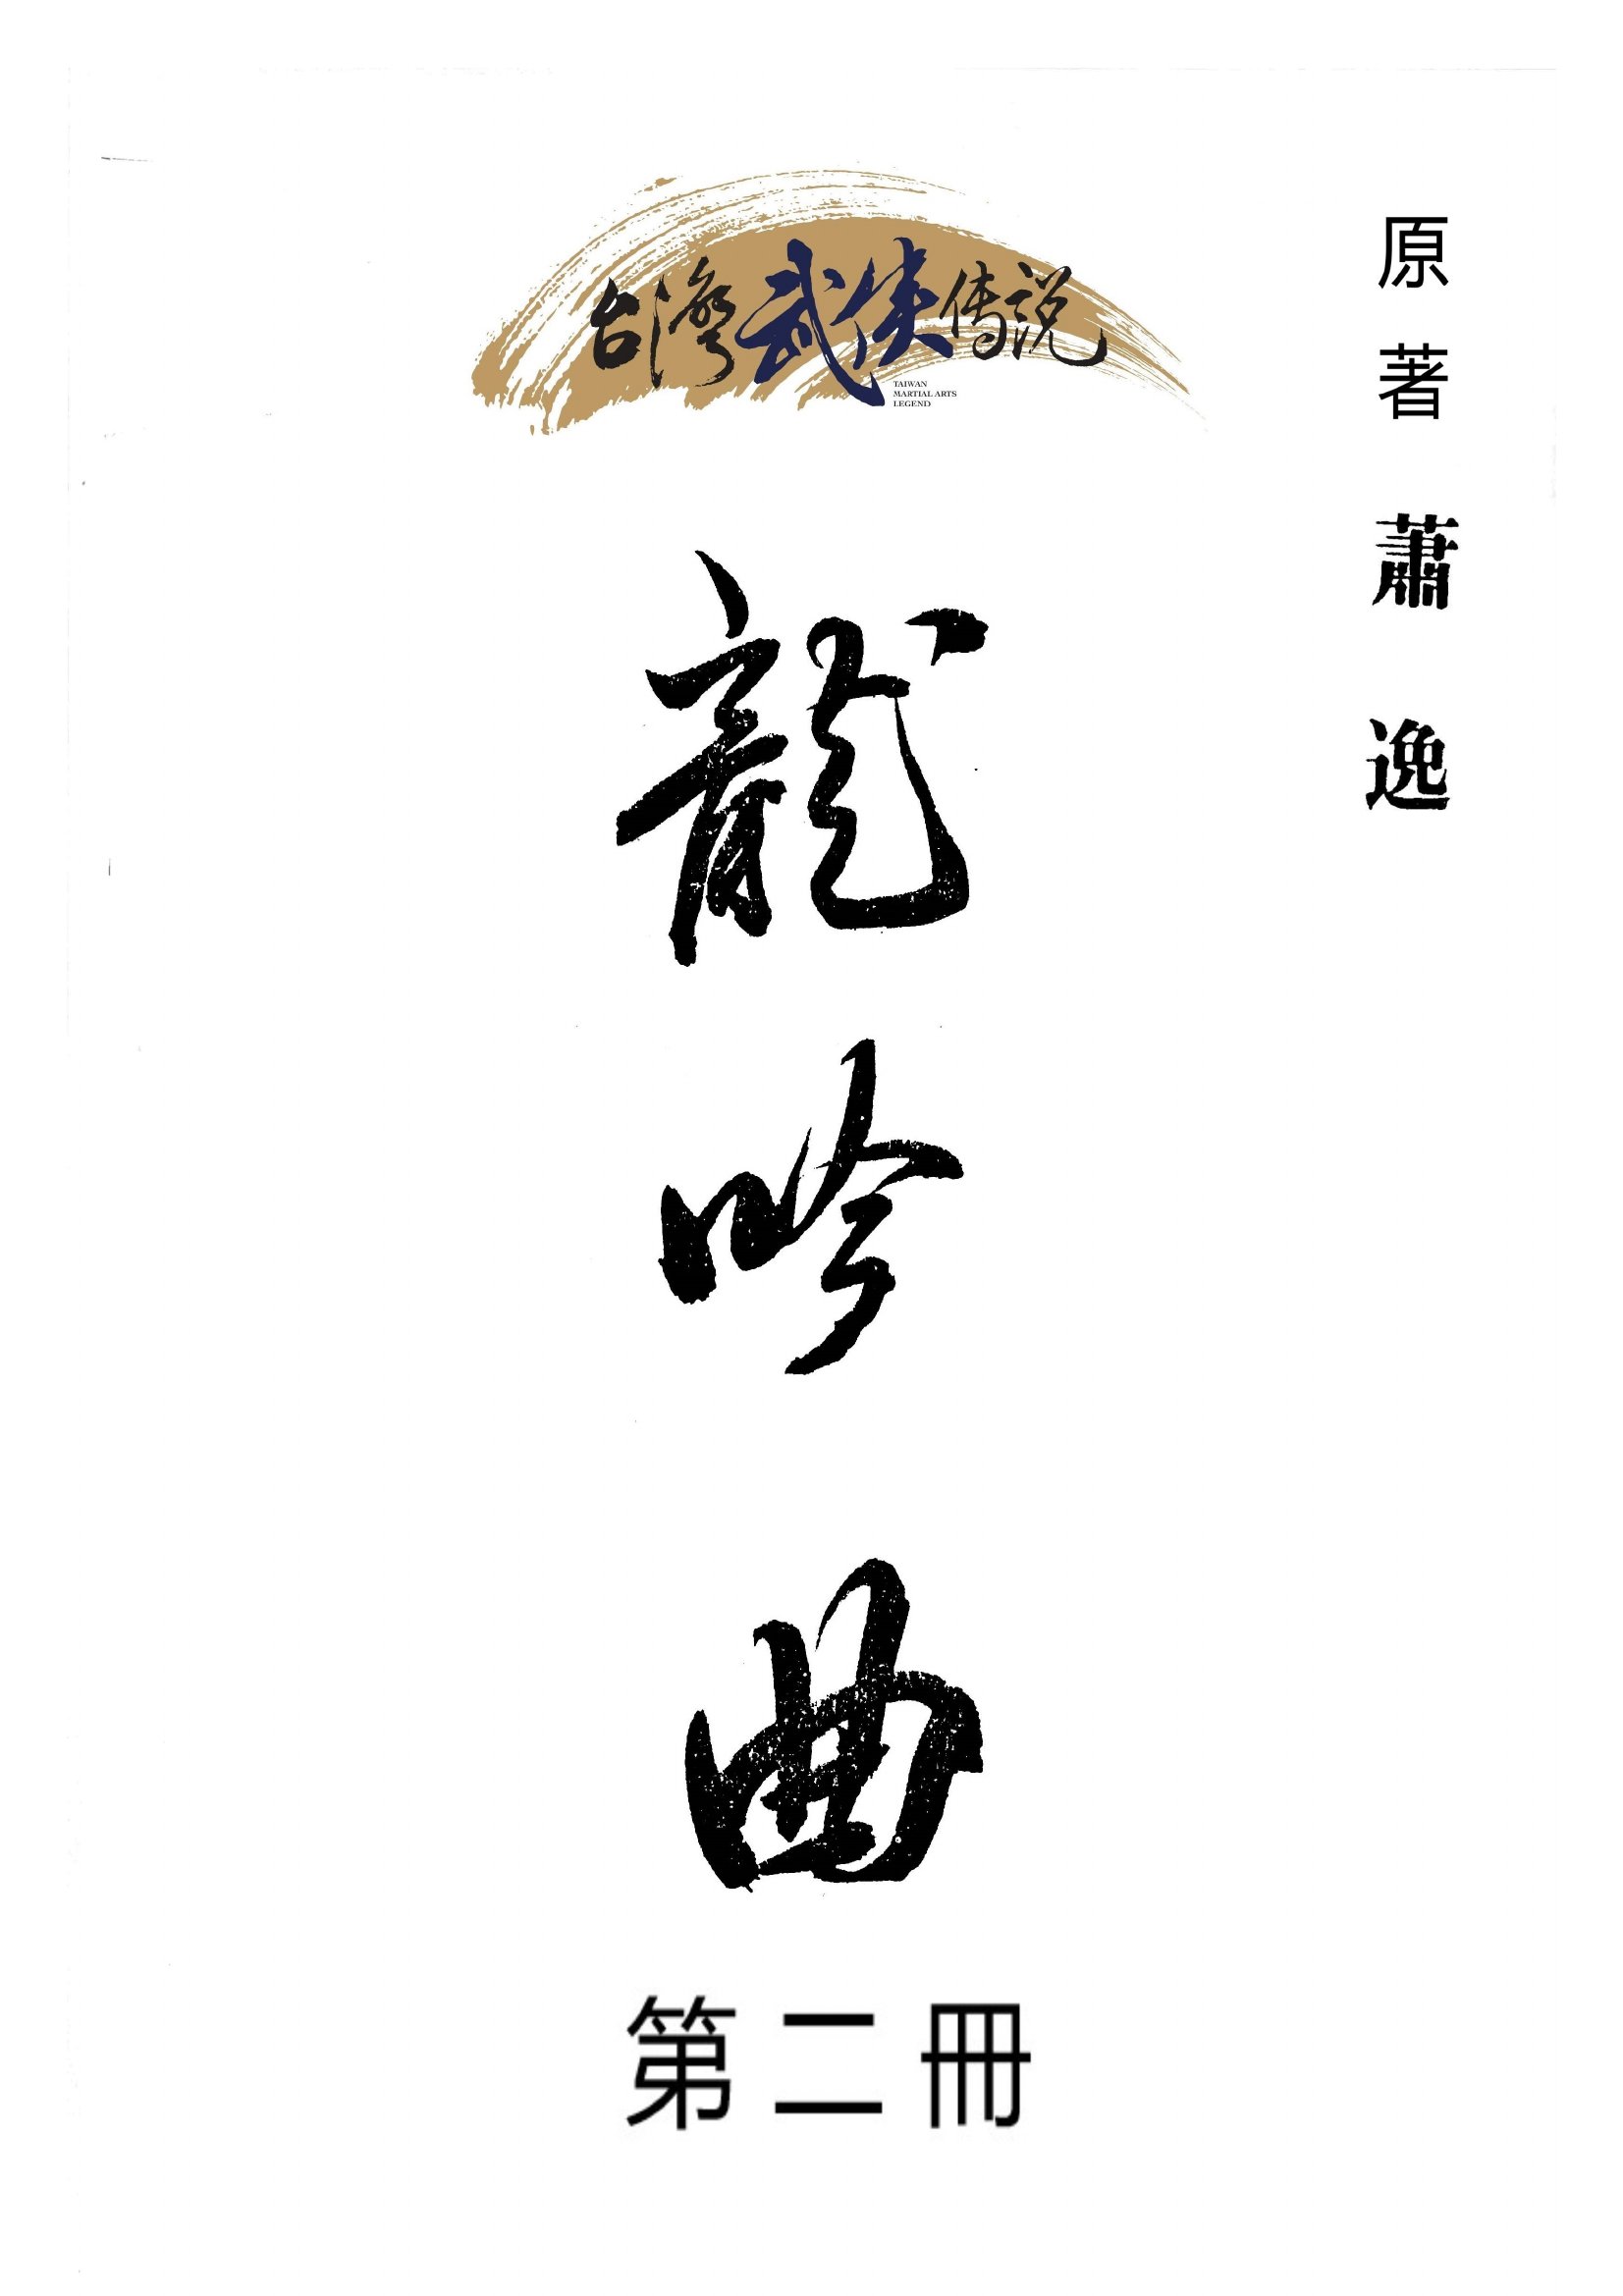 原著 蕭逸
台灣武俠传说
TAIWAN
MARTIAL ARTS
LEGEND
龍吟曲
第二冊